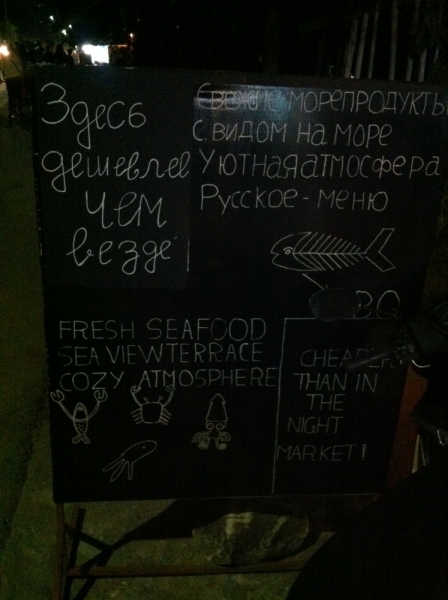 Здесь
дешевлее
чем
везде
Свежие морепродукты
с видом на море
Уютная атмосфера
Русское - меню
FRESH SEAFOOD
SEA VIEW TERRACE
COZY ATMOSPHERE
THAN IN
THE
NIGHT
MARKET!